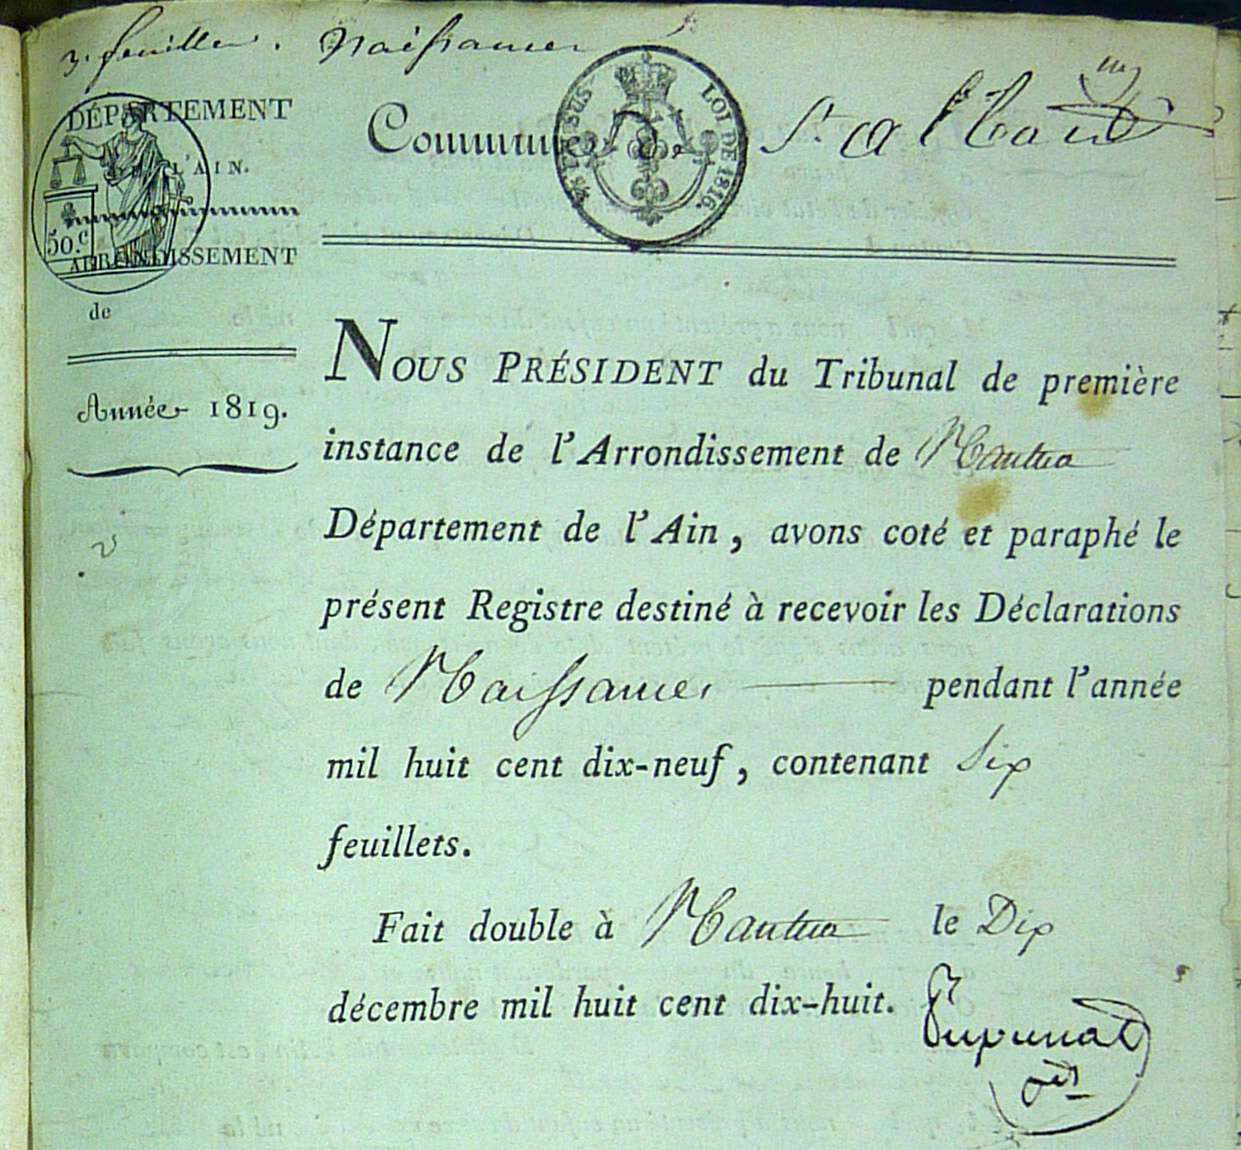 3. feuilles. Naissances
DÉPARTEMENT
L'AIN.
50.c
ARRONDISSEMENT
de
Année 1819.
EN SUS
LOI DE 1816.
Commune de St. alban
NOUS PRÉSIDENT du Tribunal de première
instance de l'Arrondissement de Nantua
Département de l'Ain, avons coté et paraphé le
présent Registre destiné à recevoir les Déclarations
de Naissances pendant l'année
mil huit cent dix-neuf, contenant Six
feuillets.
Fait double à Nantua le Dix
décembre mil huit cent dix-huit.